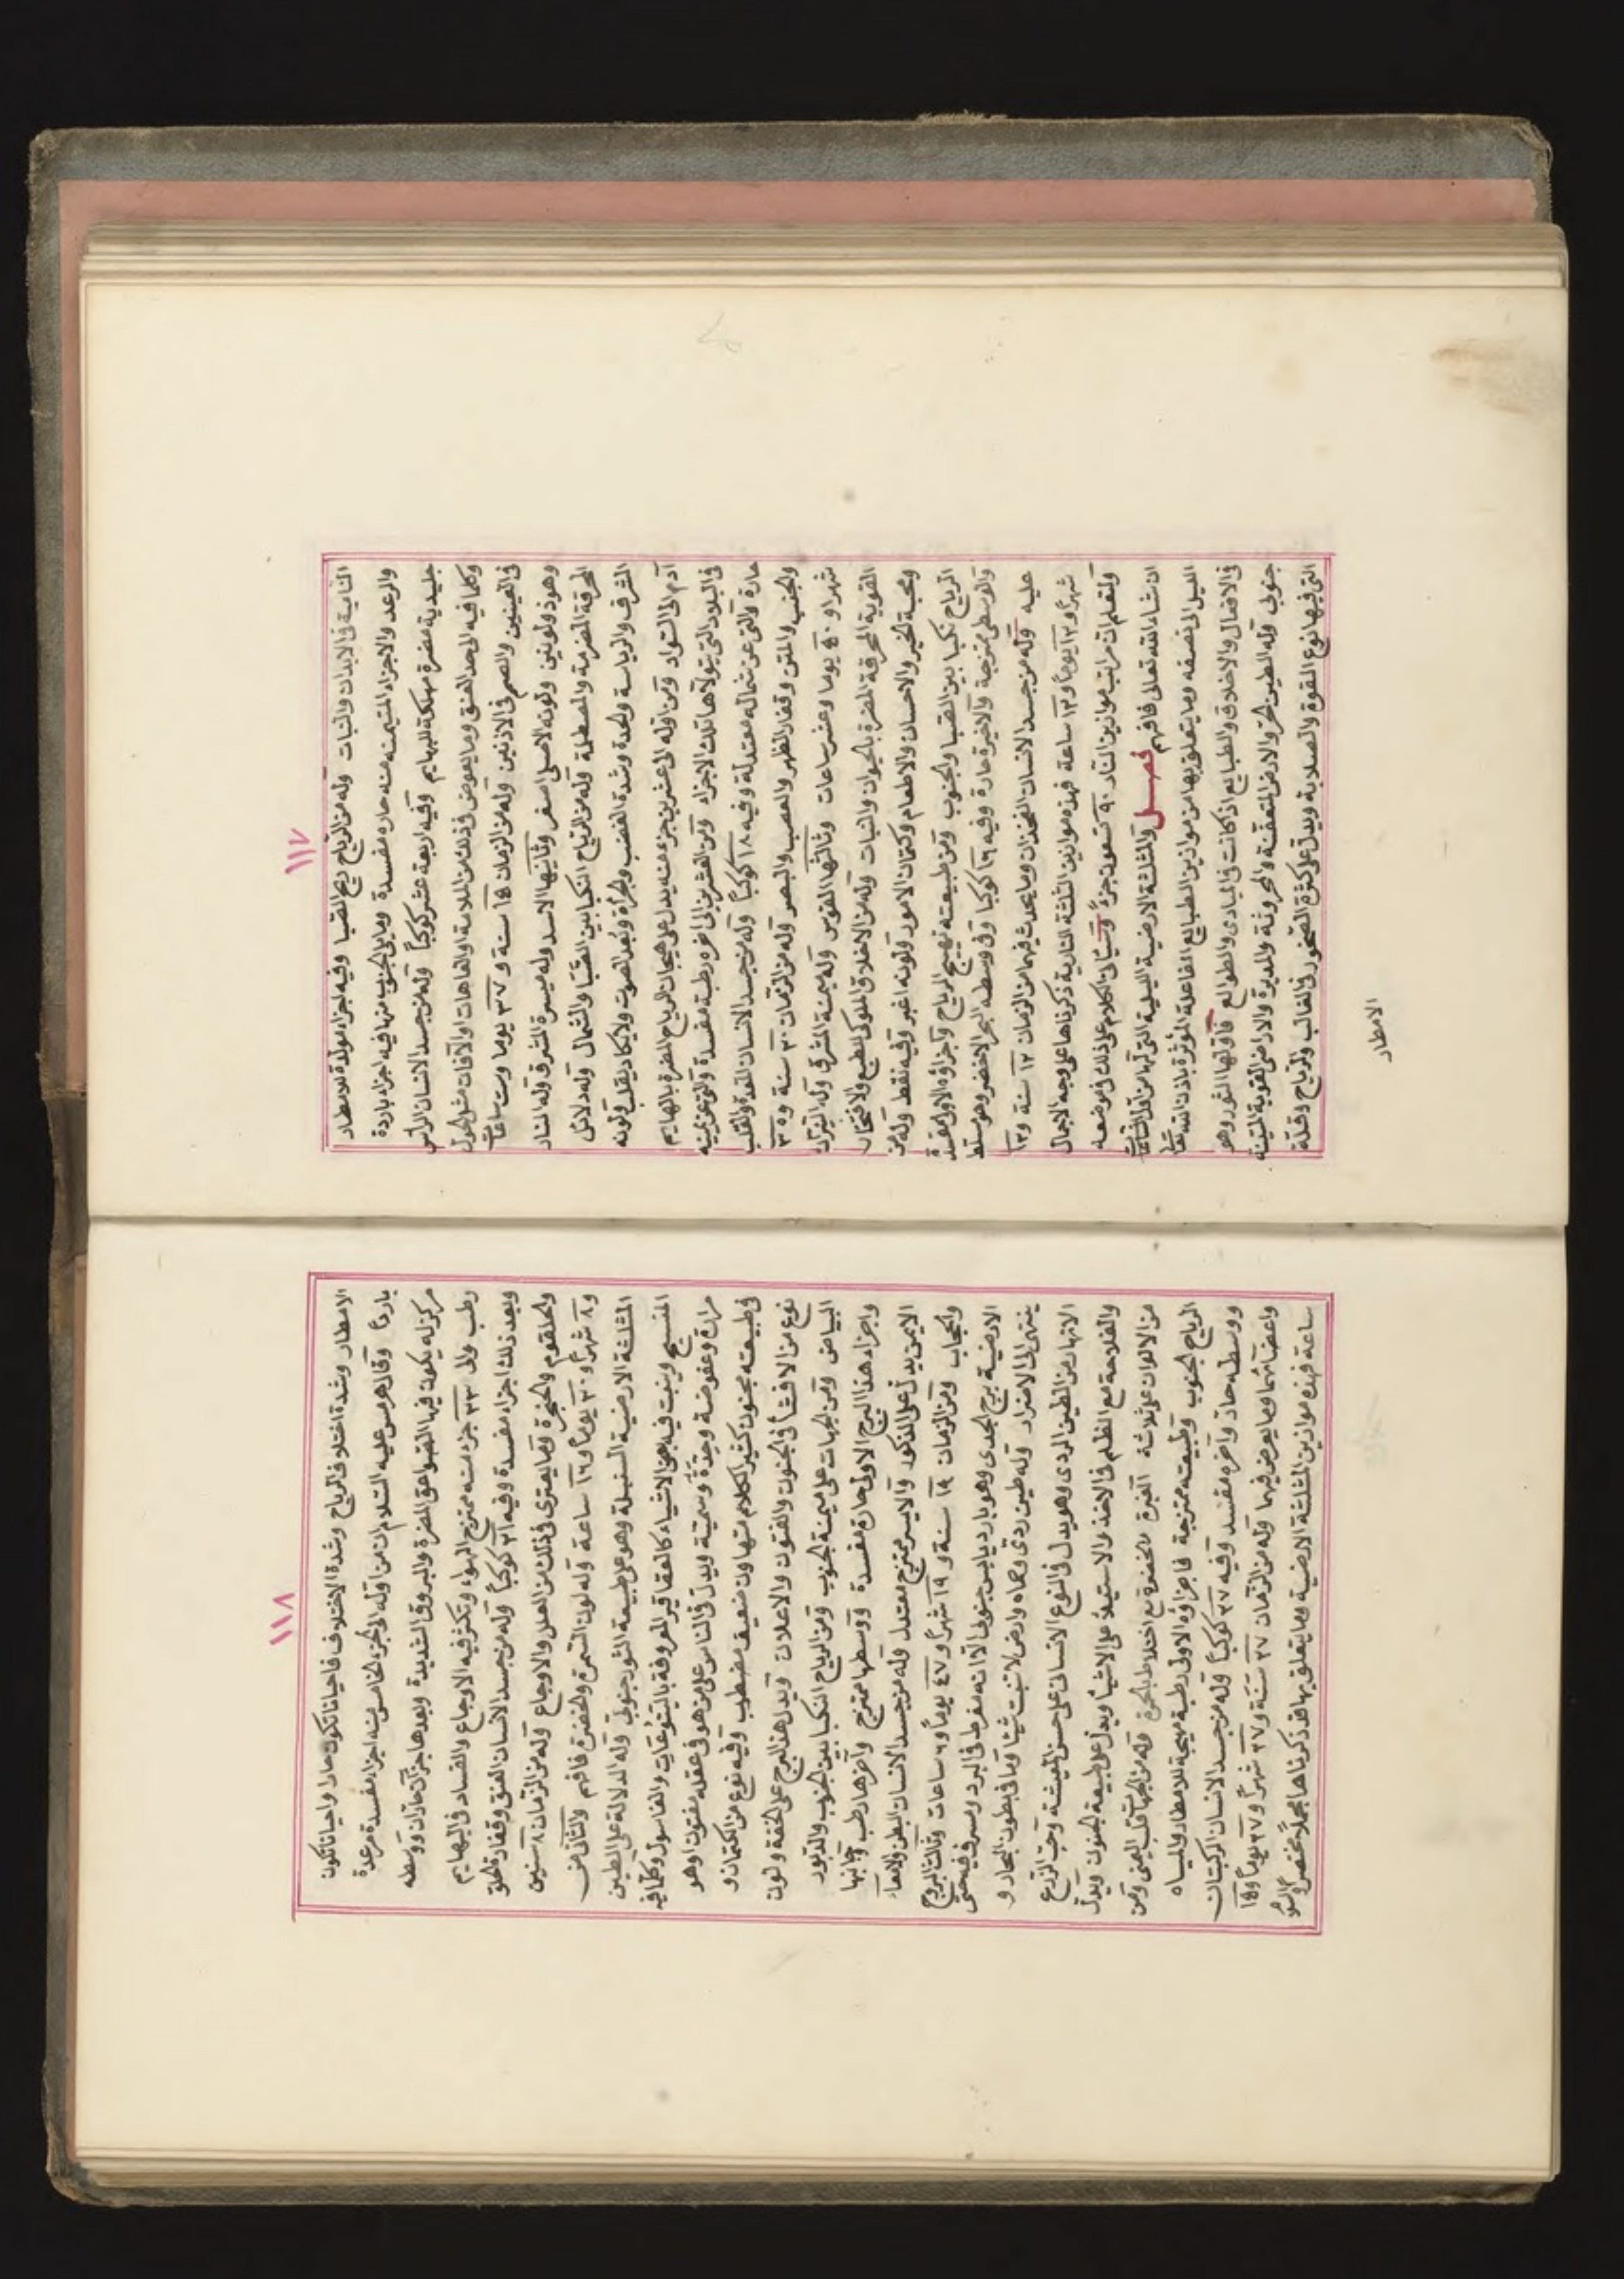 ١١٧
النامية في الابدان والنبات وله من الرياح ريح الصبا وفيه اجزاء مولدة للامطار
والرعد والاجزاء المتيمنه منه حارة مفسدة وما يلي الجنوب منها فيه اجزاء باردة
جليدية مضرة مهلكة للبهايم وفيه اربعة عشر كوكباً وله من جسد الانسان الراس
وكلما فيه الى حد العنق وما يعرض في ذلك من الملامة او العاهات او الافات مثل الحول
في العينين والصم في الاذنين وله من الزمان ١٥ سنة و ٣٧ يوما وست ساعات
وهو ذو لونين ولونه الاصلي اصفر وثانيها الاسد وله ميسرة المشرق وله النار
المحرقة المضرمة والمصطلمة وله من الرياح النكبا بين الصبا والشمال وله دلائل
الشرف والرياسة والحدة وشدة الغضب والجراة وبعد الصوت ولا يكاد يقلب ولونه
آدم الى السواد ومن اوله الى عشرين جزء منه يدل على هيجان الرياح المضرة بالبهايم
في البلاد التي يتولاها تلك الاجزاء ومن العشرين الى اخره رطبة مفسدة والتي عن يمينه
حارة والتي عن شماله معتدلة وفيه ١٨ كوكباً وله من جسد الانسان المعدة والقلب
والجنب والمتن وفقار الظهر والعصب والبصر وله من الزمان ٣٠ سنة و ٣٥
شهرا و ٤٥ يوما وعشر ساعات وثالثها القوس وله ميمنة المشرق وله النيران
القوية المحرقة المضرة بالحيوان والنبات وله من الاخلاق الملوكى الطبع والافتخار
ومحبة الخير والاحسان والاطعام وكتمان الامور ولونه اغبر وفيه نقط وله من
الرياح نكبا بين الصبا والجنوب ومن طبيعته تهييج الرياح واجزاؤه الاولى مفسدة
والوسطى ممتزجة والاخيرة حارة وفيه ٢٦ كوكبا وفي وسطه البحر الاخضر وهو مسلط
عليه وله من جسد الانسان الفخذان وما يحدث فيهما من الزمان ١٢ سنة و ١٢
شهرا و ١٢ يوما و ١٢ ساعة فهذه موازين الثلثة النارية ذكرناها على وجه الاجمال
ولتعلم ان مراتب موازين النار ٩٠ تسعون جزءً وسياتى الكلام على ذلك في موضعه
ان شاء الله تعالى فافهم فصل والمثلثة الارضية الليلية التي لها من اول الساعات
الليل الى نصفه وما يتعلق بها من موازين الطبايع الفاعلة المؤثرة باذن الله تعالى
في الافعال والاخلاق والطبايع اذ كانت في المبادى والطوالع فاولها الثور وهو
جنوبي وله الطين الحر والارض المتعفنة والمحروثة والمديرة والاراضى القوية المتينة
التي فيها نوع القوة والصلابة ويدل على كثرة الصخور في الغالب والرياح وقلة
الامطار
١١٨
الامطار وشدة اختلاف الرياح وشدة الاختلاف فاحيانا تكون حارا واحيانا تكون
باردًا وقال هرمس عليه السلام ان من اوله الى الجزء الخامس منه اجزاء مفسدة مرعدة
مركز له يكون فيها الصواعق المضرة والبروق الشديدة وبعدها جزآن حاران ووسطه
رطب والى ٣٣ جزء منه ممتزج الهواء وتكثر فيه الاوجاع والفساد في البهايم
وبعد ذلك اجزاء مفسدة وفيه ٣١ كوكباً وله من جسد الانسان العنق وفقارة الحلق
والحلقوم والحنجرة وما يعترى في ذلك من العلل والاوجاع وله من الزمان ٨ سنين
و ٨ شهراً و ٣٠ يوماً و ١٦ ساعة وله لون السمرة والخضرة فافهم والثاني من
المثلثة الارضية السنبلة وهو على طبيعة الثور جنوبي وله الدلالة على الطين
الفسيح وينبت فيه من الاشياء كالعقاقير المعروفة باليتوعات والغاسول وكلما فيه
مرارة وعفوصة وحدّة وسميّة ويدل في الناس على من هو في عقله مفتون او هو
في طبيعته مجنون كثير الكلام متهاون ضعيف مضطرب وفيه نوع من الكتمان و
نوع من الافشاء في الجنون والفنون والاعلان ويدل هذا البرج على الخفة ولون
البياض ومن الجهات على ميمنة الجنوب ومن الرياح النكبا بين الجنوب والدبور
واجزاء هذا البرج الاولى حارة مفسدة ووسطها ممتزج وآخرها رطب وجانبها
الايمن يدل على الذكور والايسر ممتزج معتدل وله من جسد الانسان البطن والامعاء
والحجاب ومن الزمان ١٩ سنة و ١٩ شهراً و ٤٧ يوماً و ٦ ساعات وثالث البروج
الارضية برج الجدى وهو بارد يابس جنوبي الا انه مفرط في البرد ومسرف فيه حتى
ينتهى الى الاضرار وله طين ردى وحماه وارض لا تنبت شيئا وما في بطون البحار و
الانهار من الطين الردى وهو يدل في النوع الانساني على حسن المعيشة وحب الزرع
والفلاحة مع الظلم في الاخذ والاستيلاء على الاشياء ويدل على طبيعة الجنون ويدل
من الالوان على ثلاثة الغبرة والخضرة مع اختلاط بالحمرة وله من الجهات قلب اليمنى ومن
الرياح الجنوب وطبيعته ممتزجة فاجزاؤه الاولى رطبة مهيجة للامطار والمياه
ووسطه حار وآخره مفسد وفيه ٢٧ كوكباً وله من جسد الانسان الركبتان
واعضائهما وما يعرض فيهما وله من الزمان ٢٧ سنة و ٢٧ شهراً و ٢٧ يوماً و ١٥
ساعة فهذه موازين المثلثة الارضية وما يتعلق بها قد ذكرناها مجملاً مختصراً